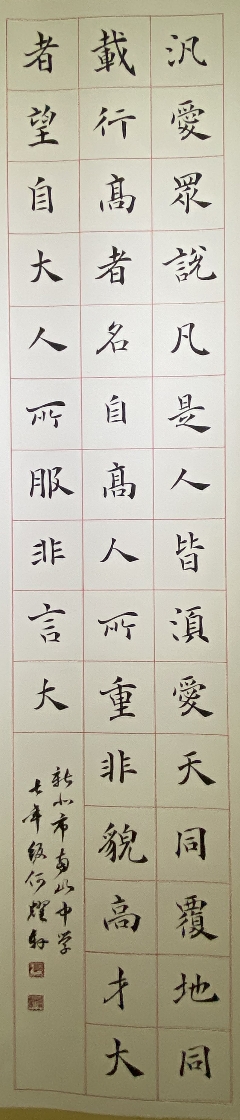 汎愛眾說凡是人皆須愛天同覆地同
載行高者名自高人所重非貌高才大
者望自大人所服非言大
新北市南山中学
七年级何耀軒